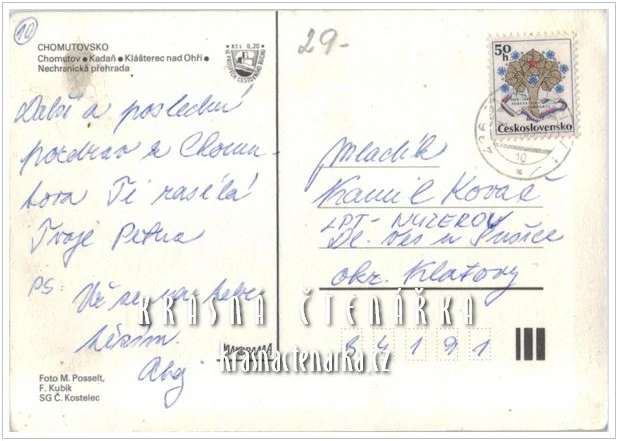 10
CHOMUTOVSKO
Chomutov • Kadaň • Klášterec nad Ohří •
Nechranická přehrada
Kčs 0,20
29-
50
h
Československo
Další a poslední
pozdrav z Chomu-
tova Ti zasílá
Tvoje Petra
PS: Už se na tebe
těším.
Ahoj
Mladík
Kamil Kovač
LPT- NUZEROV
Dl. Ves u Sušice
okr. Klatovy
34191
KRÁSNÁ ČTENÁŘKA
krasnactenarka.cz
Foto M. Posselt,
F. Kubík
SG Č. Kostelec